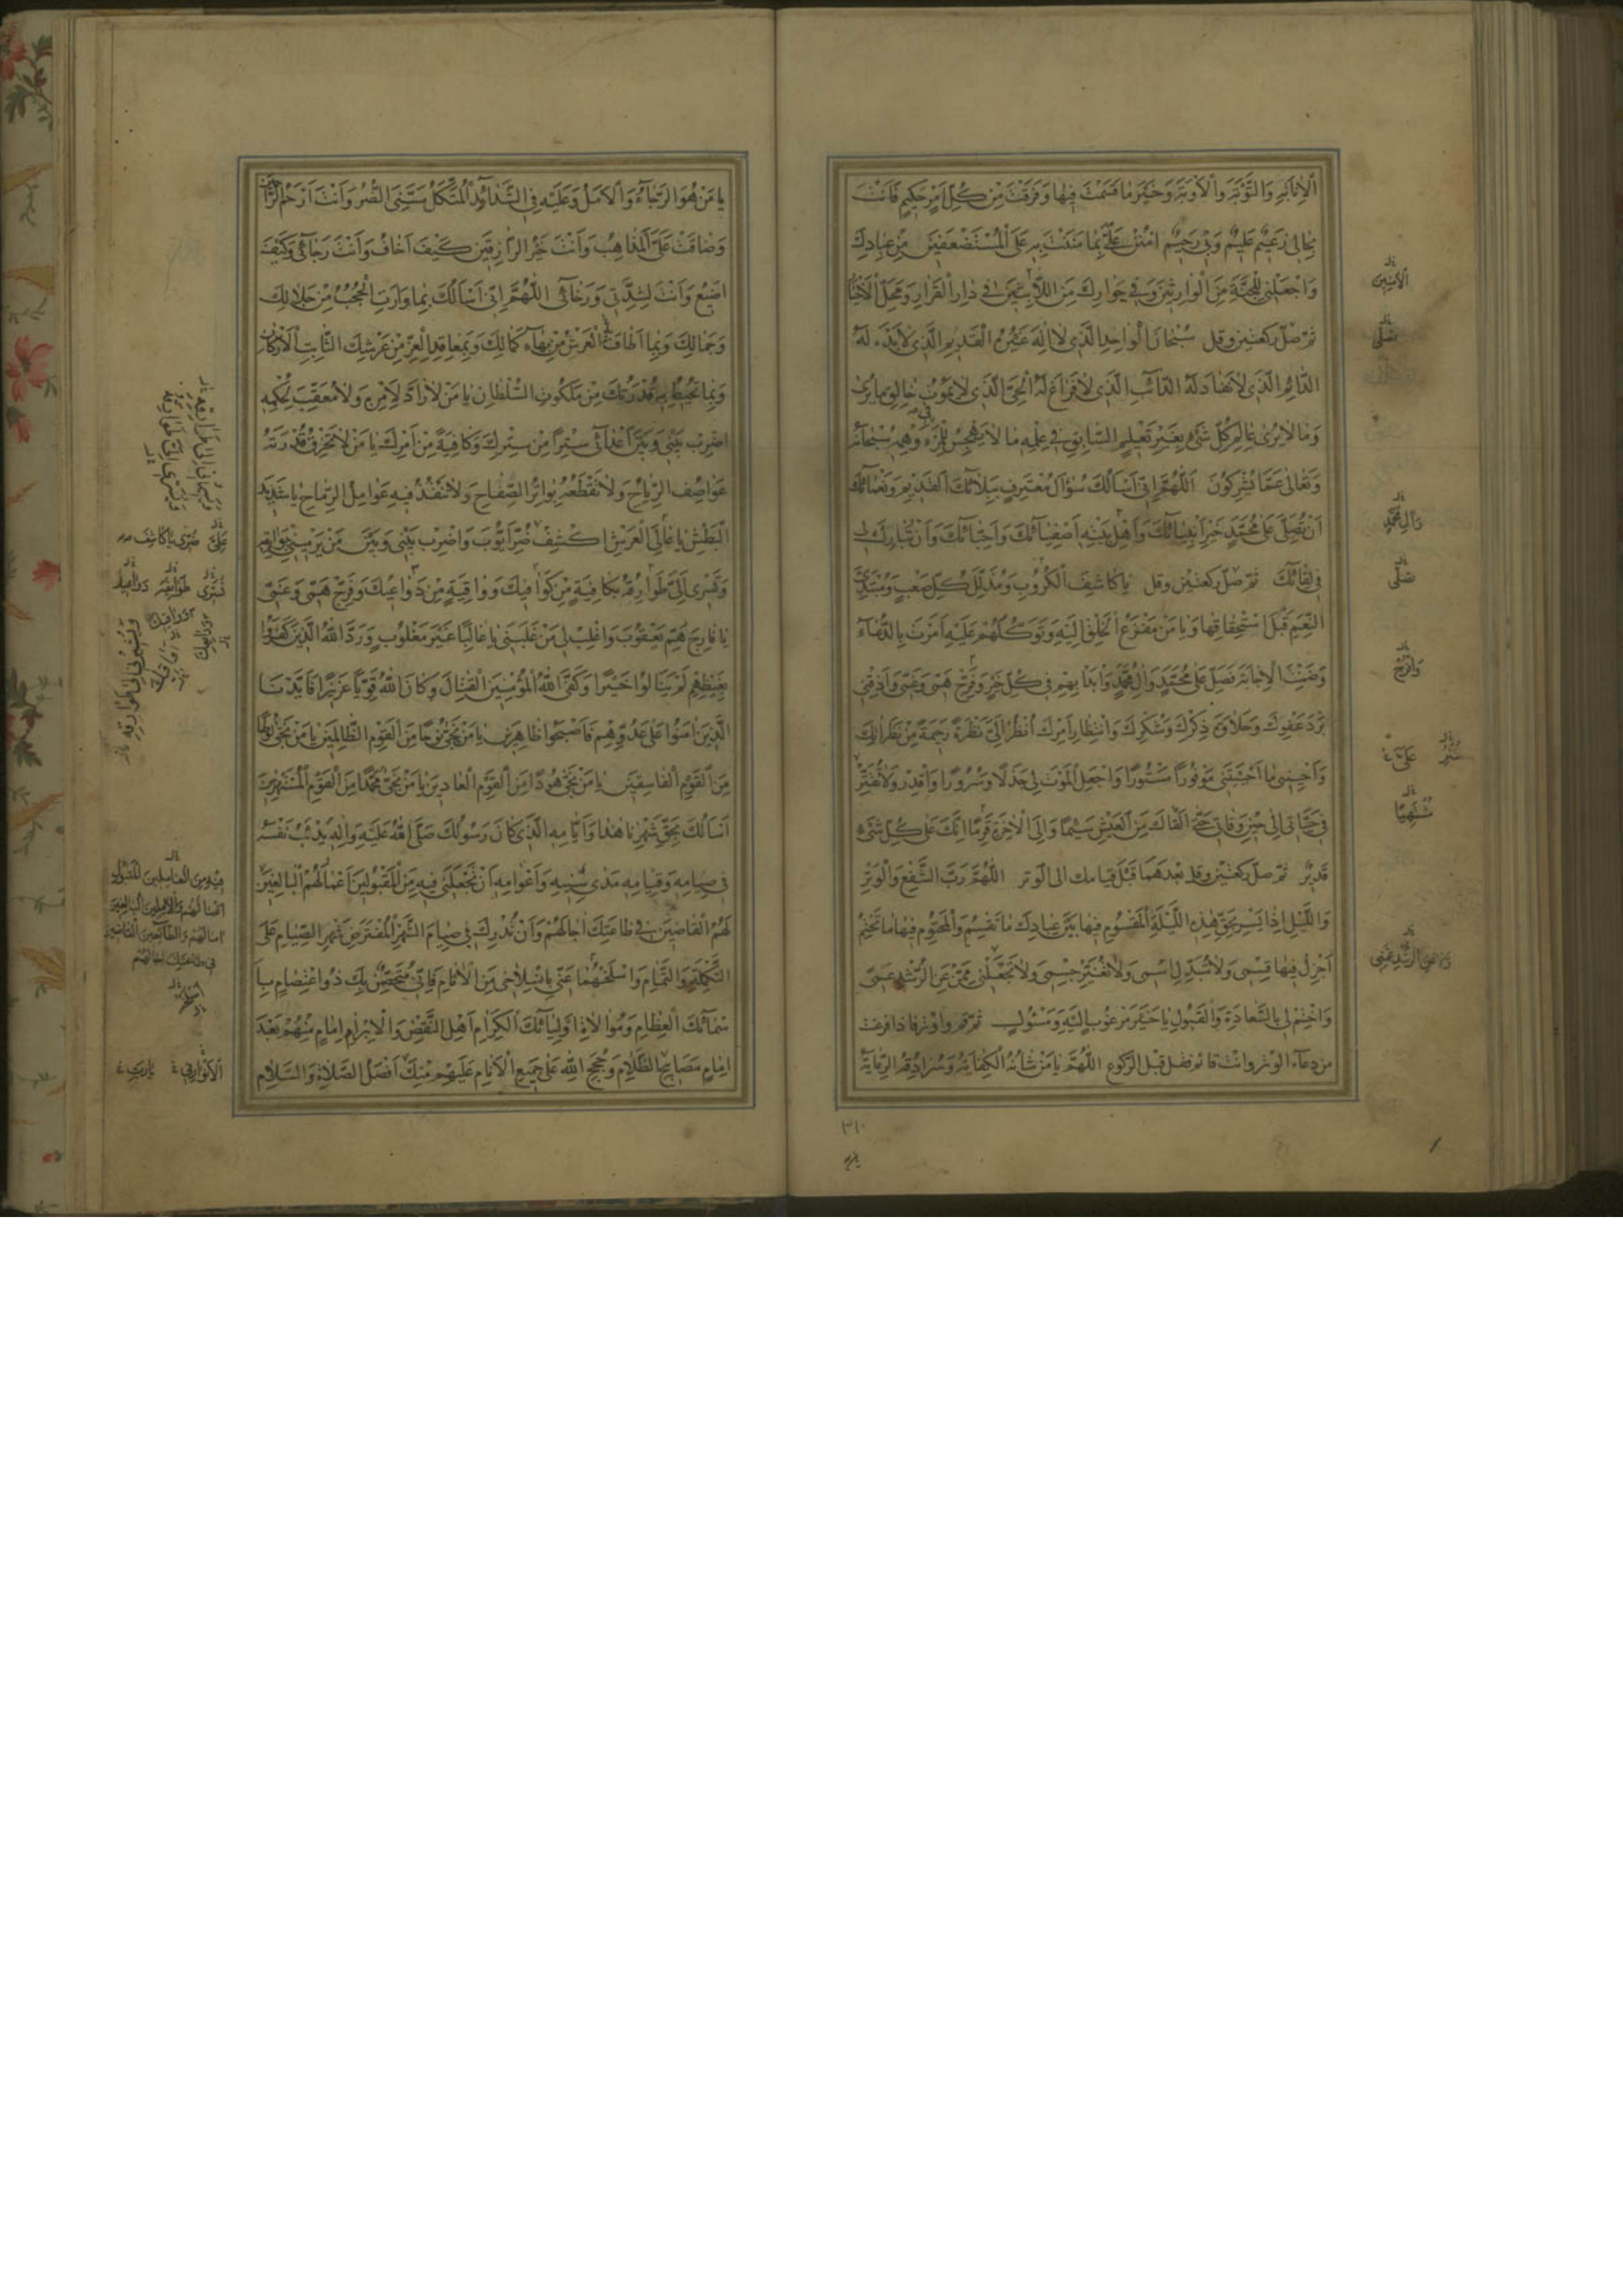 الْإِنَابَةِ وَالتَّوْبَةِ وَالْأَوْبَةِ وَخَيْرَ مَا قَسَمْتَ فِيهَا وَفَرَقْتَ مِنْ كُلِّ أَمْرٍ حَكِيمٍ فَأَنْتَ
بِحَالِي زَعِيمٌ عَلِيمٌ وَبِي رَحِيمٌ امْنُنْ عَلَيَّ بِمَا مَنَنْتَ بِهِ عَلَى الْمُسْتَضْعَفِينَ مِنْ عِبَادِكَ
وَاجْعَلْنِي لِلْجَنَّةِ مِنَ الْوَارِثِينَ وَفِي جِوَارِكَ مِنَ اللَّابِثِينَ فِي دَارِ الْقَرَارِ وَمَحَلِّ الْأَخْيَارِ
ثم صل ركعتين وقل سُبْحَانَ الْوَاحِدِ الَّذِي لَا إِلَهَ غَيْرُهُ الْقَدِيمِ الَّذِي لَا بَدْءَ لَهُ
الدَّائِمِ الَّذِي لَا نَفَادَ لَهُ الدَّائِبِ الَّذِي لَا فَرَاغَ لَهُ الْحَيِّ الَّذِي لَا يَمُوتُ خَالِقِ مَا يُرَى
وَمَا لَا يُرَى عَالِمِ كُلِّ شَيْءٍ بِغَيْرِ تَعْلِيمٍ السَّابِقِ فِي عِلْمِهِ مَا لَا يَهْجِسُ لِلْمَرْءِ فِي وَهْمِهِ سُبْحَانَهُ
وَتَعَالَى عَمَّا يُشْرِكُونَ اللَّهُمَّ إِنِّي أَسْأَلُكَ سُؤَالَ مُعْتَرِفٍ بِبَلَائِكَ الْقَدِيمِ وَنَعْمَائِكَ
أَنْ تُصَلِّيَ عَلَى مُحَمَّدٍ خَيْرِ أَنْبِيَائِكَ وَأَهْلِ بَيْتِهِ أَصْفِيَائِكَ وَأَحِبَّائِكَ وَأَنْ تُبَارِكَ لِي
فِي لِقَائِكَ ثم صل ركعتين وقل يَا كَاشِفَ الْكُرُوبِ وَمُذَلِّلَ كُلِّ صَعْبٍ وَمُبْتَدِئَ
النِّعَمِ قَبْلَ اسْتِحْقَاقِهَا وَيَا مَنْ مَفْزَعُ الْخَلْقِ إِلَيْهِ وَتَوَكُّلُهُمْ عَلَيْهِ أَمَرْتَ بِالدُّعَاءِ
وَضَمِنْتَ الْإِجَابَةَ فَصَلِّ عَلَى مُحَمَّدٍ وَآلِ مُحَمَّدٍ وَابْدَأْ بِهِمْ فِي كُلِّ خَيْرٍ وَفَرِّجْ هَمِّي وَغَمِّي وَأَذِقْنِي
بَرْدَ عَفْوِكَ وَحَلَاوَةَ ذِكْرِكَ وَشُكْرِكَ وَانْتِظَارَ أَمْرِكَ انْظُرْ إِلَيَّ نَظْرَةً رَحِيمَةً مِنْ نَظَرَاتِكَ
وَأَحْيِنِي مَا أَحْيَيْتَنِي مَوْفُورًا مَسْتُورًا وَاجْعَلِ الْمَوْتَ لِي جَذَلًا وَسُرُورًا وَاقْدِرْ وَلَا تُقَتِّرْ
فِي حَيَاتِي إِلَى حِينِ وَفَاتِي حَتَّى أَلْقَاكَ مِنَ الْعَيْشِ سَئِمًا وَإِلَى الْآخِرَةِ قَرِمًا إِنَّكَ عَلَى كُلِّ شَيْءٍ
قَدِيرٌ ثم صل ركعتين وقل بعدهما قبل قيامك الى الوتر اللَّهُمَّ رَبَّ الشَّفْعِ وَالْوَتْرِ
وَاللَّيْلِ إِذَا يَسْرِ بِحَقِّ هَذِهِ اللَّيْلَةِ الْمَقْسُومِ فِيهَا بَيْنَ عِبَادِكَ مَا تَقْسِمُ وَالْمَحْتُومِ فِيهَا مَا تَحْتِمُ
أَجْزِلْ فِيهَا قِسْمِي وَلَا تُبَدِّلِ اسْمِي وَلَا تُغَيِّرْ جِسْمِي وَلَا تَجْعَلْنِي مِمَّنْ عَنِ الرُّشْدِ عَمِيَ
وَاخْتِمْ لِي بِالسَّعَادَةِ وَالْقَبُولِ يَا خَيْرَ مَرْغُوبٍ إِلَيْهِ وَمَسْئُولٍ ثم قم واوتر فاذا فرغت
من دعاء الوتر وانت قائم فقل قبل الركوع اللَّهُمَّ يَا مَنْ شَأْنُهُ الْكِفَايَةُ وَسُرَادِقُهُ الرِّعَايَةُ
الْآمِنِينَ
صَلِّي
وَآلِ مُحَمَّدٍ
صَلِّي
وَافْرِجْ
٣١٠
يَا مَنْ هُوَ الرَّجَاءُ وَالْأَمَلُ وَعَلَيْهِ فِي الشَّدَائِدِ الْمُتَّكَلُ مَسَّنِيَ الضُّرُّ وَأَنْتَ أَرْحَمُ الرَّاحِمِينَ
وَضَاقَتْ عَلَيَّ الْمَذَاهِبُ وَأَنْتَ خَيْرُ الرَّازِقِينَ كَيْفَ أَخَافُ وَأَنْتَ رَجَائِي وَكَيْفَ
أَضِيعُ وَأَنْتَ لِشِدَّتِي وَرَخَائِي اللَّهُمَّ إِنِّي أَسْأَلُكَ بِمَا وَارَتِ الْحُجُبُ مِنْ جَلَالِكَ
وَجَمَالِكَ وَبِمَا أَطَافَ الْعَرْشَ مِنْ بَهَاءِ كَمَالِكَ وَبِمَعَاقِدِ الْعِزِّ مِنْ عَرْشِكَ الثَّابِتِ الْأَرْكَانِ
وَبِمَا تُحِيطُ بِهِ قُدْرَتُكَ مِنْ مَلَكُوتِ السُّلْطَانِ يَا مَنْ لَا رَادَّ لِأَمْرِهِ وَلَا مُعَقِّبَ لِحُكْمِهِ
اضْرِبْ بَيْنِي وَبَيْنَ أَعْدَائِي سِتْرًا مِنْ سِتْرِكَ وَكَافِيَةً مِنْ أَمْرِكَ يَا مَنْ لَا تَخْرِقُ قُدْرَتَهُ
عَوَاصِفُ الرِّيَاحِ وَلَا تَقْطَعُهُ بَوَاتِرُ الصِّفَاحِ وَلَا تَنْفُذُ فِيهِ عَوَامِلُ الرِّمَاحِ يَا شَدِيدَ
الْبَطْشِ يَا عَالِيَ الْعَرْشِ اكْشِفْ ضُرِّي يَا كَاشِفَ ضُرِّ أَيُّوبَ وَاضْرِبْ بَيْنِي وَبَيْنَ مَنْ يَرْمِينِي بِبَوَائِقِهِ
وَتَسْرِي إِلَيَّ طَوَارِقُهُ بِكَافِيَةٍ مِنْ كَوَافِيكَ وَوَاقِيَةٍ مِنْ دَوَاعِيكَ وَفَرِّجْ هَمِّي وَغَمِّي
يَا فَارِجَ هَمِّ يَعْقُوبَ وَاغْلِبْ لِي مَنْ غَلَبَنِي يَا غَالِبًا غَيْرَ مَغْلُوبٍ وَرَدَّ اللَّهُ الَّذِينَ كَفَرُوا
بِغَيْظِهِمْ لَمْ يَنَالُوا خَيْرًا وَكَفَى اللَّهُ الْمُؤْمِنِينَ الْقِتَالَ وَكَانَ اللَّهُ قَوِيًّا عَزِيزًا فَأَيَّدْنَا
الَّذِينَ آمَنُوا عَلَى عَدُوِّهِمْ فَأَصْبَحُوا ظَاهِرِينَ يَا مَنْ نَجَّى نُوحًا مِنَ الْقَوْمِ الظَّالِمِينَ يَا مَنْ نَجَّى لُوطًا
مِنَ الْقَوْمِ الْفَاسِقِينَ يَا مَنْ نَجَّى هُودًا مِنَ الْقَوْمِ الْعَادِينَ يَا مَنْ نَجَّى مُحَمَّدًا مِنَ الْقَوْمِ الْمُسْتَهْزِئِينَ
أَسْأَلُكَ بِحَقِّ شَهْرِنَا هَذَا وَأَيَّامِهِ الَّذِي كَانَ رَسُولُكَ صَلَّى اللَّهُ عَلَيْهِ وَآلِهِ يَدْأَبُ نَفْسَهُ
فِي صِيَامِهِ وَقِيَامِهِ مَدَى سِنِيهِ وَأَعْوَامِهِ أَنْ تَجْعَلَنِي فِيهِ مِنَ الْمَقْبُولِينَ أَعْمَالُهُمُ الْبَالِغِينَ
لَهُمُ الْقَاضِينَ فِي طَاعَتِكَ آجَالَهُمْ وَأَنْ تُدْرِكَ بِي صِيَامَ الشَّهْرِ الْمُفْتَرَضِ شَهْرِ الصِّيَامِ عَلَى
التَّكْمِلَةِ وَالتَّمَامِ وَاسْلَخْهُمَا عَنِّي بِانْسِلَاخِي مِنَ الْآثَامِ فَإِنِّي مُتَحَصِّنٌ بِكَ ذُو اعْتِصَامٍ بِأَ
سْمَائِكَ الْعِظَامِ وَمُوَالَاةِ أَوْلِيَائِكَ الْكِرَامِ أَهْلِ النَّقْضِ وَالْإِبْرَامِ إِمَامٍ مِنْهُمْ بَعْدَ
إِمَامٍ مَصَابِيحِ الظَّلَامِ وَحُجَجِ اللَّهِ عَلَى جَمِيعِ الْأَنَامِ عَلَيْهِمْ مِنْكَ أَفْضَلُ الصَّلَاةِ وَالسَّلَامِ